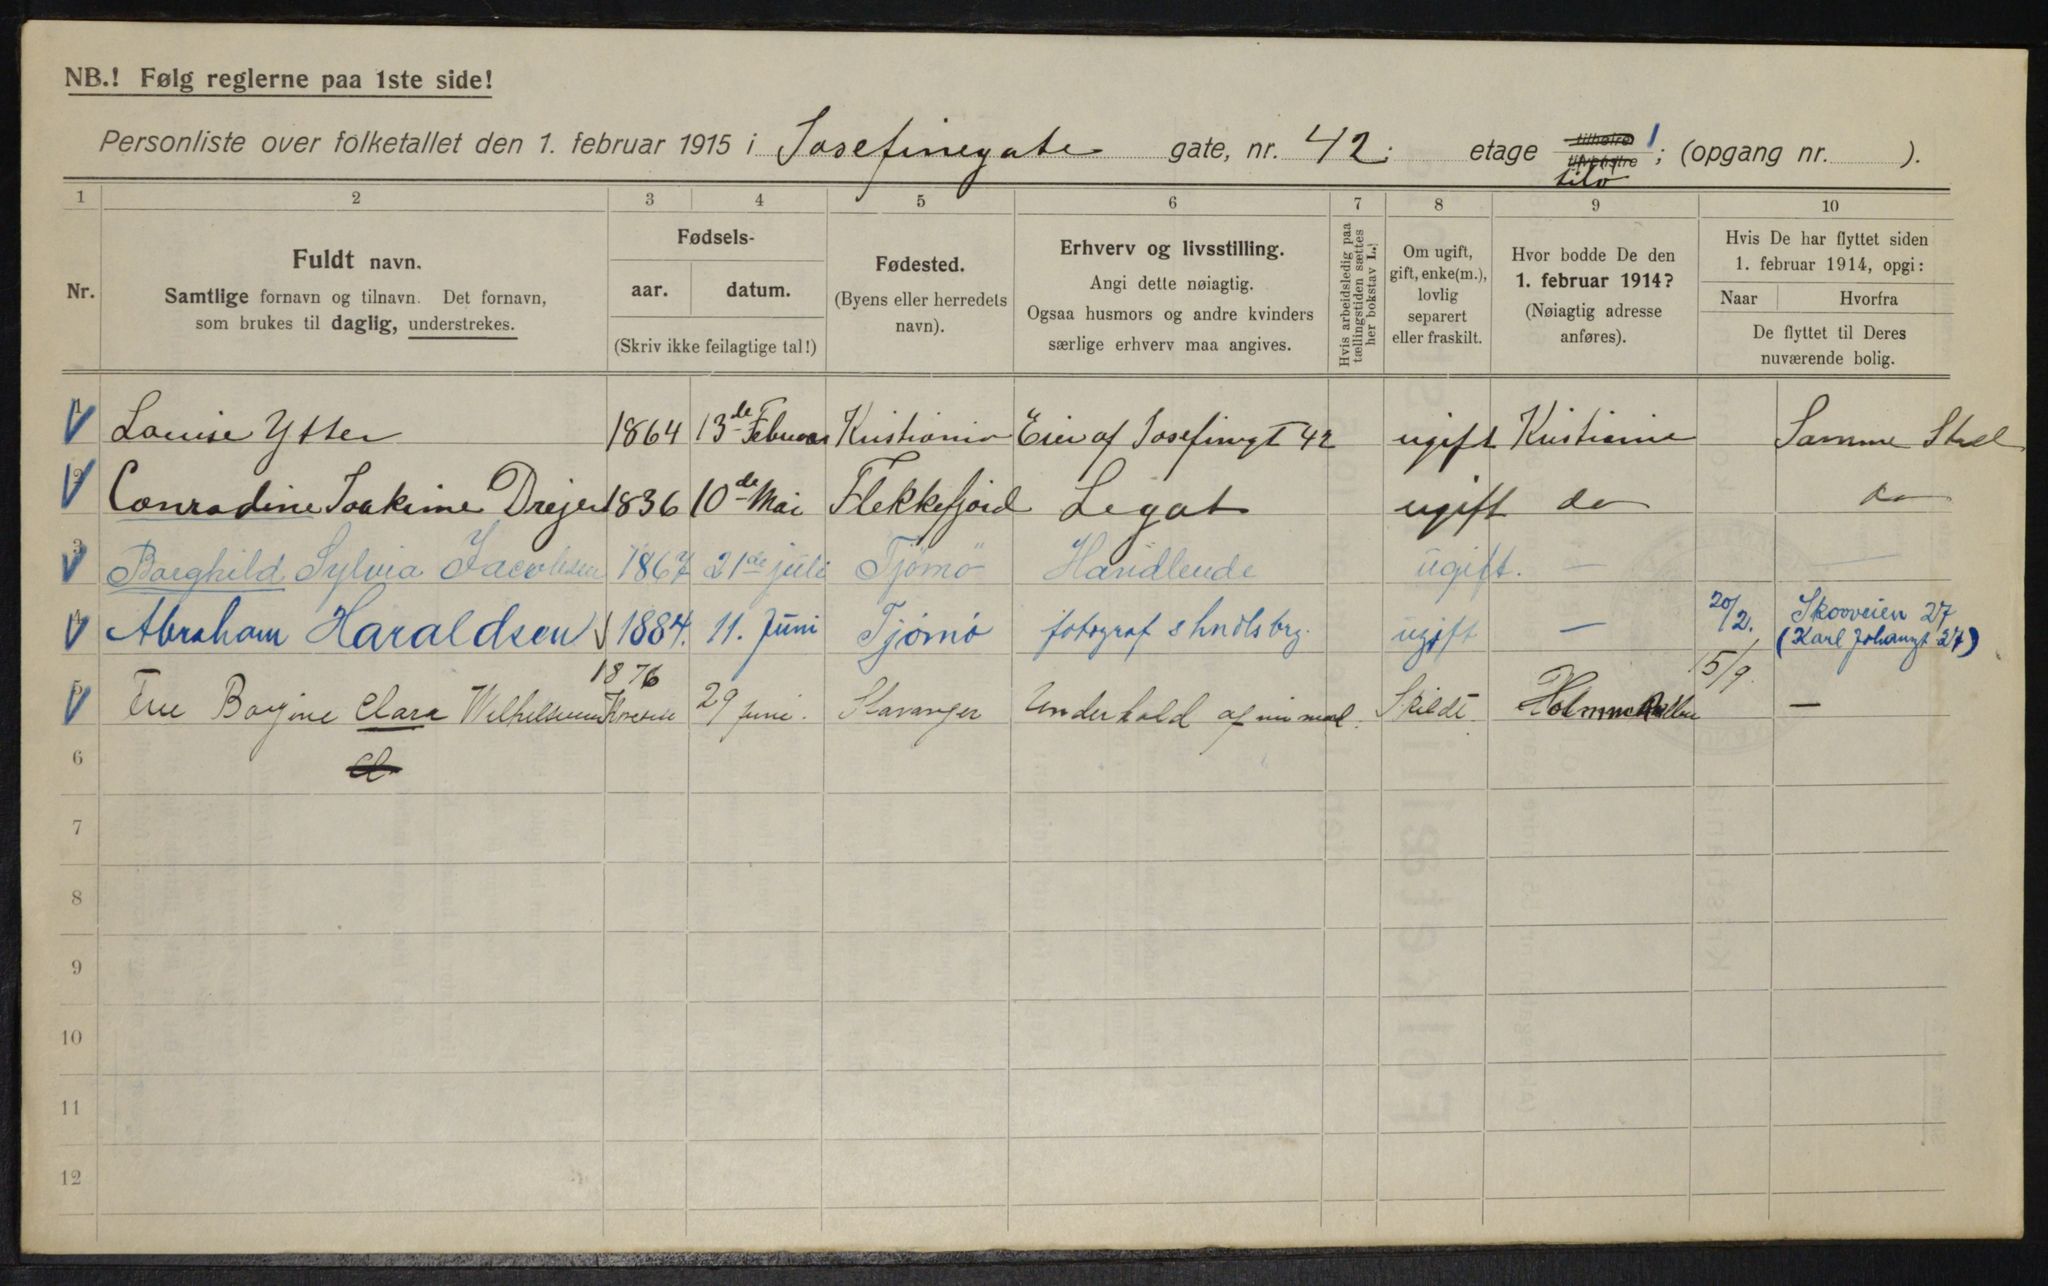 NB.! Følg reglerne paa 1ste side!
Personliste over folketallet den 1. februar 1915 i Josefinegate gate, nr. 42; etage 1 ; (opgang nr. ).
1 2 3 4 5 6 7 8 9 10
Nr.
Fuldt navn.
Samtlige fornavn og tilnavn. Det fornavn,
som brukes til daglig, understrekes.
Fødsels-
aar. datum.
(Skriv ikke feilagtige tal!)
Fødested.
(Byens eller herredets
navn).
Erhverv og livsstilling.
Angi dette nøiagtig.
Ogsaa husmors og andre kvinders
særlige erhverv maa angives.
Hvis arbeidsledig paa
tællingstiden sættes
her bokstav L.!
Om ugift,
gift, enke(m.),
lovlig
separert
eller fraskilt.
Hvor bodde De den
1. februar 1914?
(Nøiagtig adresse
anføres).
Hvis De har flyttet siden
1. februar 1914, opgi:
Naar Hvorfra
De flyttet til Deres
nuværende bolig.
1 Louise Ytter 1864 13de Februar Kristiania Eier af Josefinegt 42 ugift Kristiania Samme Sted
2 Conradine Joakime Dreyer 1836 10de Mai Flekkefjord Legat ugift do do
3 Borghild Sylvia Jacobsen 1867 21de juli Tjømö Handlende ugift. — —
4 Abraham Haraldsen 1884. 11. Juni Tjömö fotograf & hndlsbrg. ugift — 20/2. Skovveien 27
(Karl Johansgt 27)
1876 15/9.
5 Fru Borgine Clara 29 juni. Stavanger Underhold af min mand. Skildt. —
6
7
8
9
10
11
12